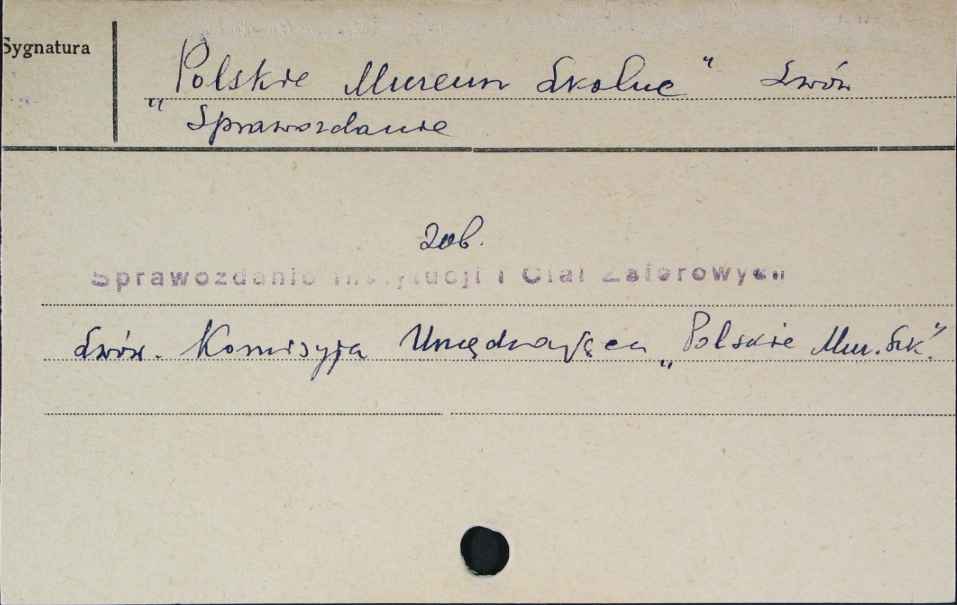 Sygnatura
„Polskie Muzeum Szkolne" Lwów
Sprawozdanie
Zob.
Sprawozdanie Instytucji i Ciał Zbiorowych
Lwów. Komisyja Urządzająca „Polskie Muz. Szk."